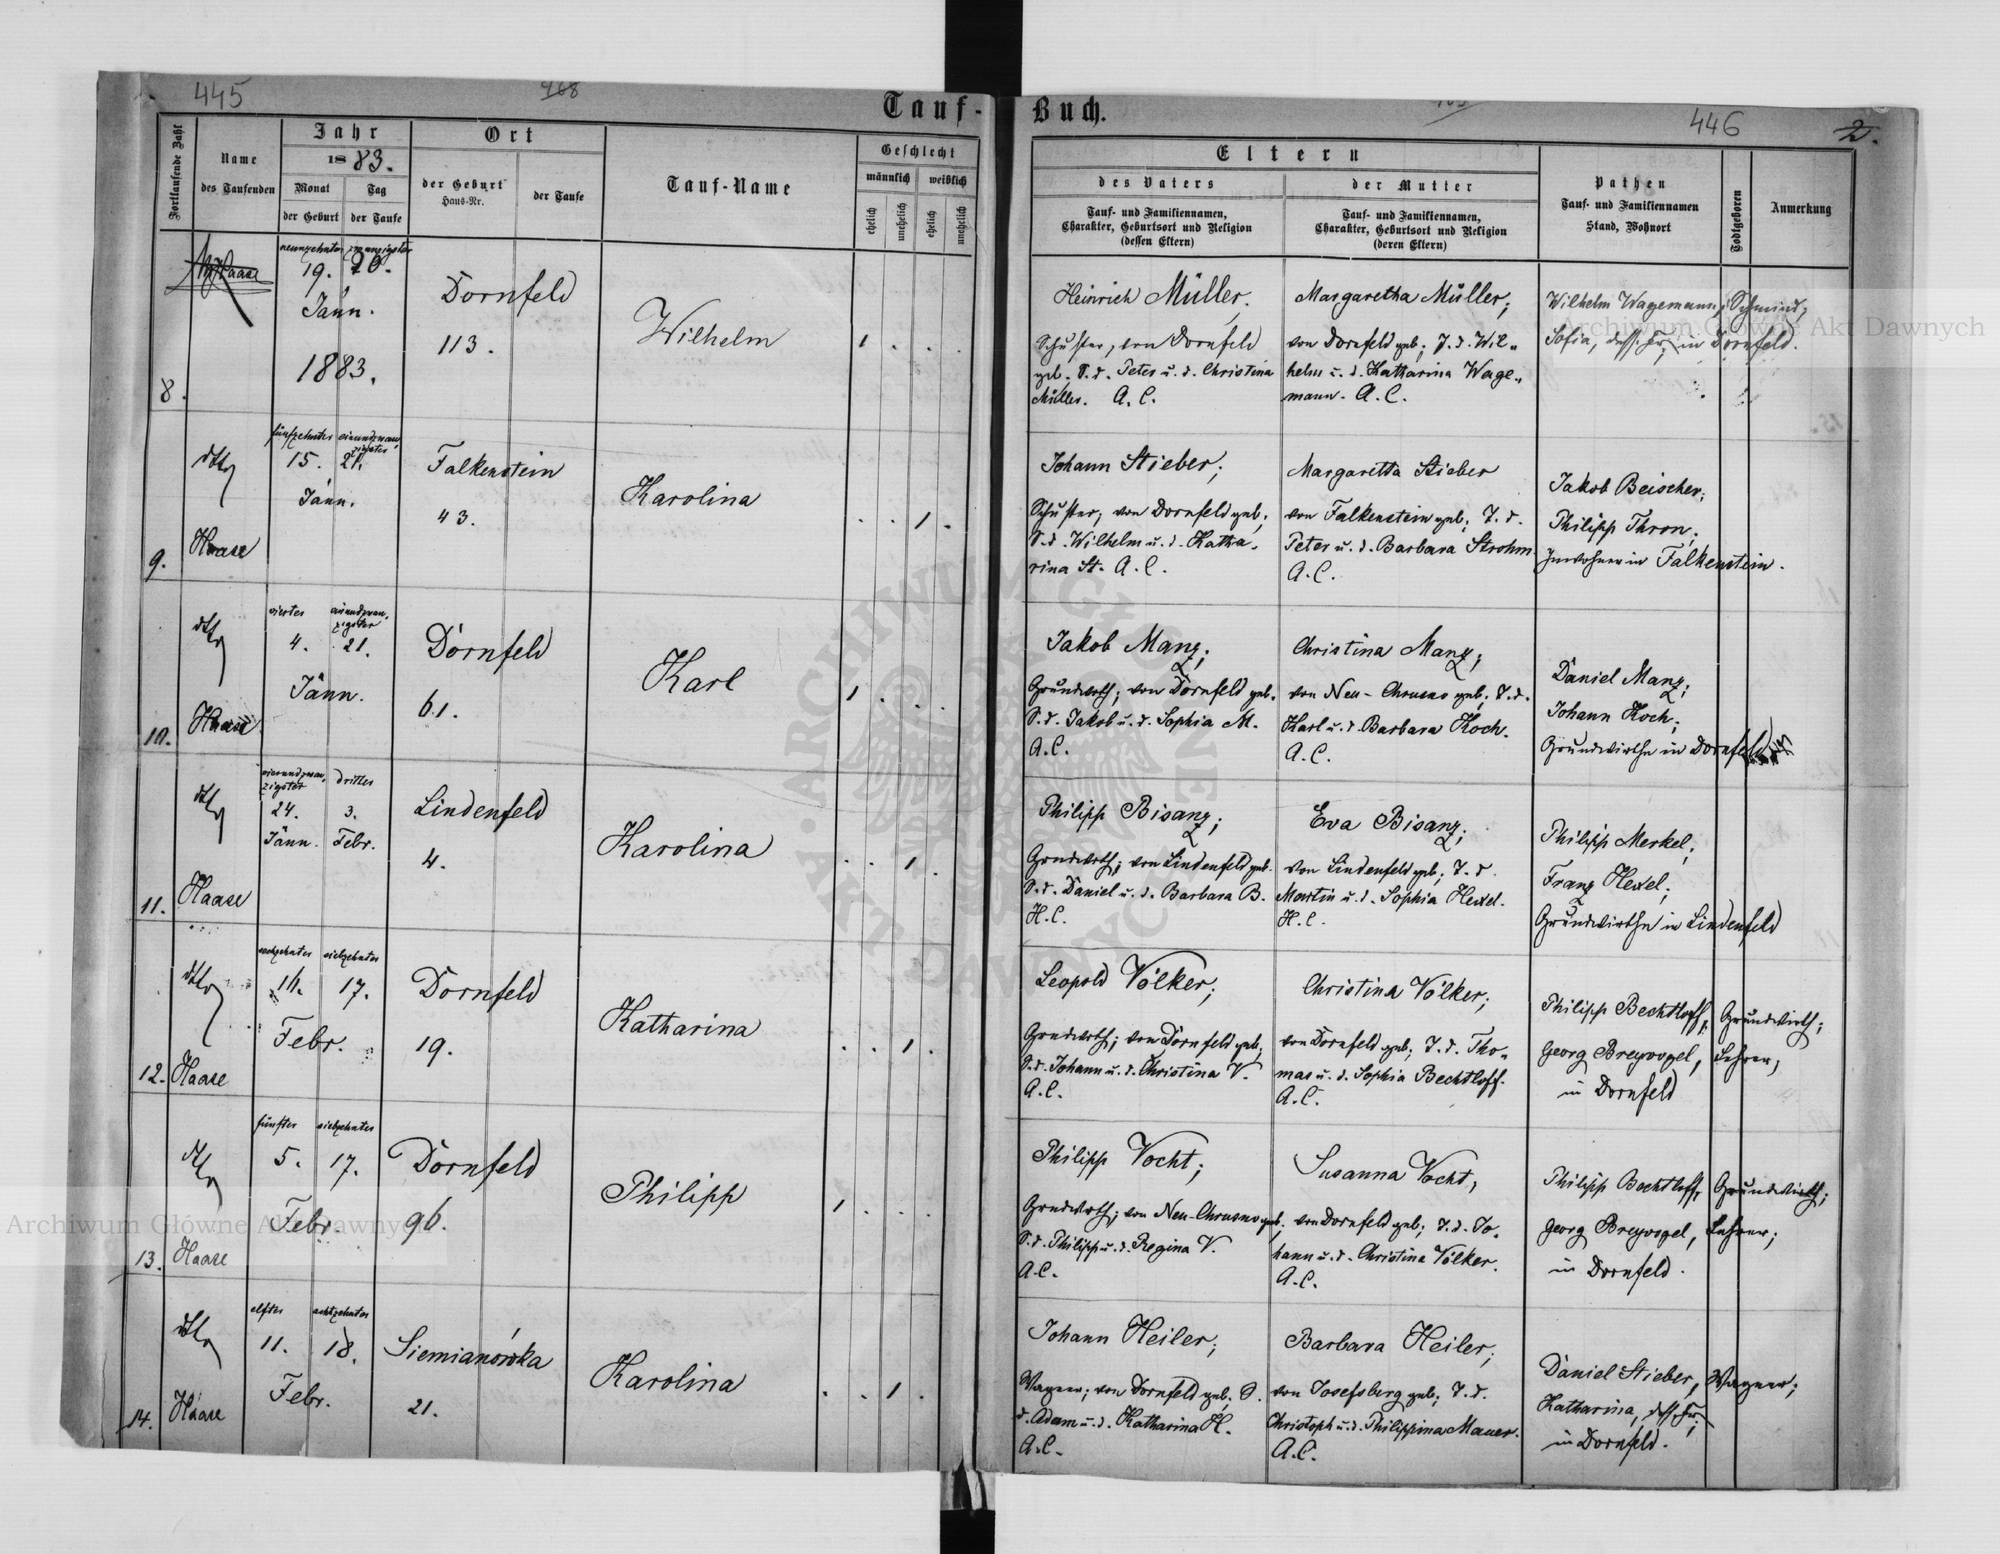 445
468
Tauf-
Buch.
446
2.
Fortlaufende Zahl
Name
des Taufenden
Jahr
1883.
Monat
der Geburt
Tag
der Taufe
Ort
der Geburt
Haus-Nr.
der Taufe
Tauf-Name
Geschlecht
männlich
weiblich
ehelich
unehelich
ehelich
unehelich
Eltern
des Vaters
Tauf- und Familiennamen,
Charakter, Geburtsort und Religion
(dessen Eltern)
der Mutter
Tauf- und Familiennamen,
Charakter, Geburtsort und Religion
(deren Eltern)
Pathen
Tauf- und Familiennamen
Stand, Wohnort
Todtgeboren
Anmerkung
8.
Haase
neunzehnter
zwanzigster
19.
20.
Jänn.
1883.
Dornfeld
113.
Wilhelm
1 . . .
Heinrich Müller,
Schuster, von Dornfeld
geb. S. d. Peter u. d. Christina
Müller. A. C.
Margaretha Müller;
von Dornfeld geb; T. d. Wil-
helm u. d. Katharina Wage-
mann. A. C.
Wilhelm Wagemann, Schmied;
Sofia, dess. Fr; in Dornfeld.
9.
dtto
Haase
fünfzehnter
einundzwan-
zigster
15.
21.
Jänn.
Falkenstein
43.
Karolina
. . 1 .
Johann Stieber;
Schuster; von Dornfeld geb;
S. d. Wilhelm u. d. Katha-
rina St. A. C.
Margaretta Stieber
von Falkenstein geb; T. d.
Peter u. d. Barbara Strohm
A. C.
Jakob Beischer;
Philipp Thron;
Inwohner in Falkenstein.
10.
dtto
Haase
viertes
einundzwan-
zigster
4.
21.
Jänn.
Dornfeld
61.
Karl
1 . . .
Jakob Manz;
Grundwrth; von Dornfeld geb.
S. d. Jakob u. d. Sophia M.
A. C.
Christina Manz;
von Neu-Chrusno geb; T. d.
Karl u. d. Barbara Koch.
A. C.
Daniel Manz;
Johann Koch;
Grundwirthe in Dornfeld
11.
dtto
Haase
vierundzwan-
zigster
dritter
24.
3.
Jänn.
Febr.
Lindenfeld
4.
Karolina
. . 1 .
Philipp Bisanz;
Grndwrth; von Lindenfeld geb.
S. d. Daniel u. d. Barbara B.
H. C.
Eva Bisanz;
von Lindenfeld geb; T. d.
Martin u. d. Sophia Hexel.
H. C.
Philipp Merkel;
Franz Hexel;
Grundwirthe in Lindenfeld
12.
dtto
Haase
sechzehnter
siebzehnter
16.
17.
Febr.
Dornfeld
19.
Katharina
. . 1 .
Leopold Völker;
Grndwrth; von Dornfeld geb;
S. d. Johann u. d. Christina V.
A. C.
Christina Völker;
von Dornfeld geb; T. d. Tho-
mas u. d. Sophia Bechtloff.
A. C.
Philipp Bechtloff, Grundwirth;
Georg Breyvogel, Lehrer;
in Dornfeld
13.
dtto
Haase
fünfter
siebzehnter
5.
17.
Febr.
Dornfeld
96.
Philipp
1 . . .
Philipp Vocht;
Grndwrth; von Neu-Chrusno geb;
S. d. Philipp u. d. Regina V.
A. C.
Susanna Vocht;
von Dornfeld geb; T. d. Jo-
hann u. d. Christina Völker.
A. C.
Philipp Bechtloff, Grundwirth;
Georg Breyvogel, Lehrer;
in Dornfeld.
14.
dtto
Haase
elfter
achtzehnter
11.
18.
Febr.
Siemianówka
21.
Karolina
. . 1 .
Johann Heiler;
Wagner; von Dornfeld geb; S.
d. Adam u. d. Katharina H.
A. C.
Barbara Heiler;
von Josefsberg geb; T. d.
Christoph u. d. Philippina Mauer.
A. C.
Daniel Stieber, Wagner;
Katharina, dess. Fr;
in Dornfeld.
Archiwum Główne Akt Dawnych
Archiwum Główne Akt Dawnych
ARCHIWUM GŁÓWNE AKT DAWNYCH